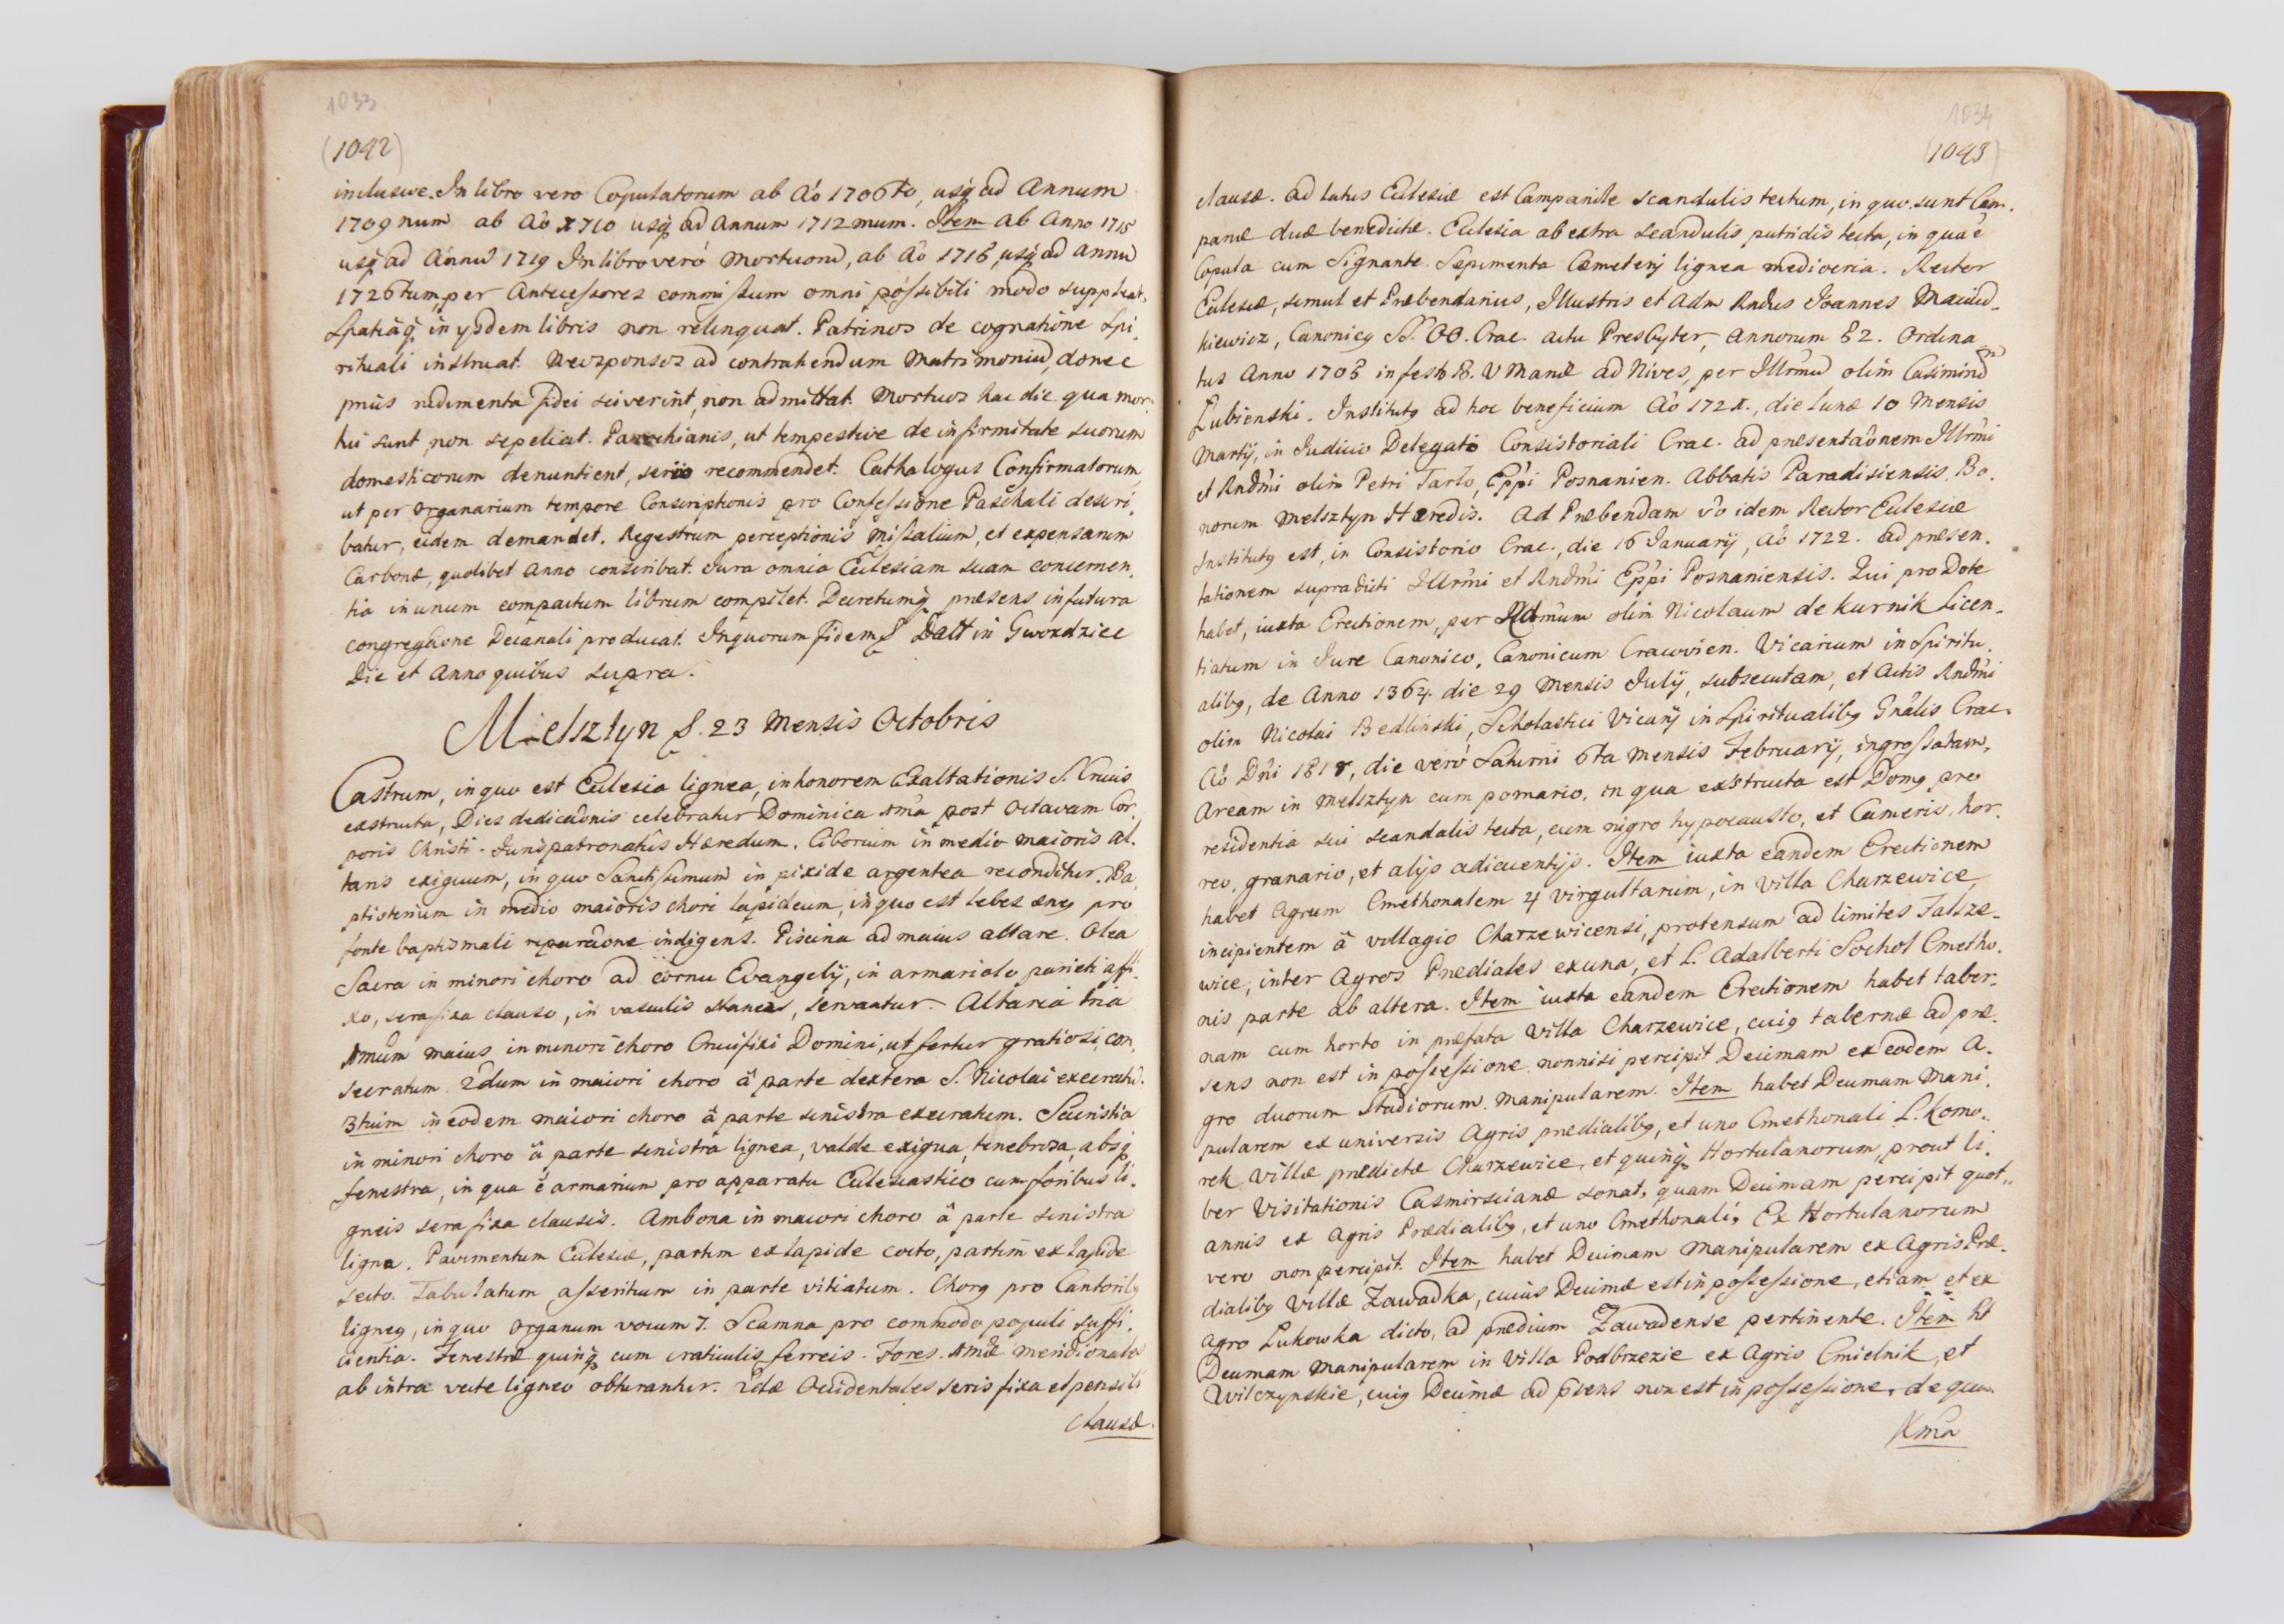 1033
(1042)
inclusive. In libro vero Copulatorum ab Aô 1706to, usq̃ ad Annum
1709num ab Aô 1710 usq̃ ad Annum 1712mum. Item ab Anno 1715
usq̃ ad Annũ 1719 In libro verò Mortuorũ, ab Aô 1716 usq̃ ad annũ
1726tum, per Antecessores commissum omni possibili modo suppleat,
Spatiaq̃ in ysdem libris non relinquat. Patrinos de cognatione Spi,
rituali instruat. Neosponsos ad contrahendum Matrimoniũ, donec
priùs rudimenta fidei sciverint, non admittat. Mortuos hac die qua mor,
tui sunt, non sepeliat. Parochianis, ut tempestive de infirmitate suorum
domesticorum denuntient, serio recommendet. Cathalogus Confirmatorum,
ut per Organarium tempore Conscriptionis pro Confessione Paschali descri,
batur, eidem demandet. Regestrum perceptionis Missalium, et expensarum
Carbonæ, quolibet Anno conscribat. Jura omnia Ecclesiam suam concernen,
tia in unum compactum librum compilet. Decretumq̃ præsens in futura
congregaõne Decanali producat. In quorum fidem & Datt in Gwozdziec
Die et Anno quibus supra.
Mielsztyn D. 23 Mensis Octobris
Castrum, in quo est Ecclesia lignea, in honorem Exaltationis S. Crucis
exstructa, Dies dedicaõnis celebratur Dominica 1ma post Octavam Cor,
poris Christi. Juris patronatûs Hæredum. Ciborium in medio maioris al,
taris exiguum, in quo Sanctissimum in pixide argentea reconditur. Ba,
ptisterium in medio maioris chori lapideum, in quo est lebes æneꝯ pro
fonte baptismali reparaõne indigens. Piscina ad maius altare. Olea
Sacra in minori choro ad cornu Evangelÿ, in armariolo parieti affi,
xo, sera fixa clauso, in vasculis staneis, servantur. Altaria tria
1mum maius in minori choro Crucifixi Domini, ut fertur gratiosi, con,
secratum. 2dum in maiori choro â parte dextera S. Nicolai execratũ.
3tium in eodem maiori choro â parte sinistra execratum. Sacristia
in minori choro â parte sinistra lignea, valde exigua, tenebrosa, absq̃
fenestra, in qua ẽ armarium pro apparatu Ecclesiastico cum foribus li,
gneis sera fixa clausis. Ambona in maiori choro â parte sinistra
lignea. Pavimentum Ecclesiæ, partim ex lapide cocto, partim ex lapide
secto. Tabulatum asseritium in parte vitiatum. Chorꝯ pro Cantoribꝯ
ligneꝯ, in quo Organum vocum 7. Scamna pro commodo populi suffi,
cientia. Fenestræ quinq̃ cum craticulis ferreis. Fores 1mæ meridionales
ab intra vecte ligneo obturantur. 2dæ Occidentales seris fixa et pensili
clausæ.
1034
(1043)
clausæ. Ad latus Ecclesiæ est Campanile scandulis tectum, in quo sunt Cam,
panæ duæ benedictæ. Ecclesia ab extra scandulis putridis tecta, in qua ẽ
Copula cum Signante. Sepimenta Cæmeterÿ lignea mediocria. Rector
Ecclesiæ, simul et Præbendarius, Illustris et Adm Rndus Joannes
kiewicz, Canonicꝯ SS. OO. Crac. actu Presbyter, annorum 52. Ordina
tus Anno 1705 in festo B. V Mariæ ad Nives, per Illrmũ olim Casimirũ
Lubienski. Institutꝯ ad hoc beneficium Aô 1721., die lunæ 10 Mensis
Martÿ, in Judicio Delegato Consistoriali Crac. ad præsentaõnem Illrmi
et Rndmi olim Petri Tarło, Eppi Posnanien. Abbatis Paradisiensis, Bo,
norum Melsztyn Hæredis. Ad Præbendam v̊o idem Rector Ecclesiæ
Institutꝯ est, in Consistorio Crac., die 16 Januarÿ, Aô 1722. ad præsen,
tationem supradicti Illrmi et Rndmi Eppi Posnaniensis. Qui pro Dote
habet, iuxta Erectionem, per olim Nicolaum de Kurnik Licen,
tiatum in Jure Canonico, Canonicum Cracovien. Vicarium in Spiritu,
alibꝯ, de Anno 1364. die 29 Mensis Julÿ, subsecutam, et Actis Rndmi
olim Nicolai Bedlinski, Scholastici Vicarÿ in Spiritualibꝯ Gnâlis Crac.
Aô Dni, die verò Saturni 6ta Mensis Februarÿ, ingrossatam,
Aream in Melsztyn cum pomario, in qua exstructa est Domꝯ pro
residentia sui scandulis tecta, cum nigro hypocausto, et Cameris, hor,
reo, granario, et alÿs adiacentÿs. Item iuxta eandem Erectionem
habet Agrum Cmethonalem 4 virgultarum, in Villa Charzewice,
incipientem â villagio Charzewicensi, protensum ad limites Falisze,
wice, inter Agros Prædiales ex una, et L. Adalberti Sochol Cmetho,
nis parte ab altera. Item iuxta eandem Erectionem habet taber,
nam cum horto in præfata Villa Charzewice, cuiꝯ tabernæ ad præ,
sens non est in possessione, nonnisi percipit Decimam ex eodem A,
gro duorum Stadiorum. Manipularem. Item habet Decimam Mani,
pularem ex universis Agris prædialibꝯ, et uno Cmethonali L. Komo,
rek Villæ prædictæ Charzewice, et quinq̃ Hortulanorum, prout li,
ber Visitationis Casmirscianæ sonat, quam Decimam percipit quot,,
annis ex Agris Prædialibꝯ, et uno Cmethonali, Ex Hortulanorum
vero non percipit. Item habet Decimam Manipularem ex Agris Præ,
dialibꝯ Villæ Zawadka, cuius Decimæ est in possessione, etiam et ex
agro Lukowka dicto, ad prædium Zawadense pertinente. Item ht
Decimam Manipularem in Villa Podbrzezie ex Agris Cmielnik, et
Wilczynskie, cuiꝯ Decimæ ad p̃sens non est in possessione, de qua